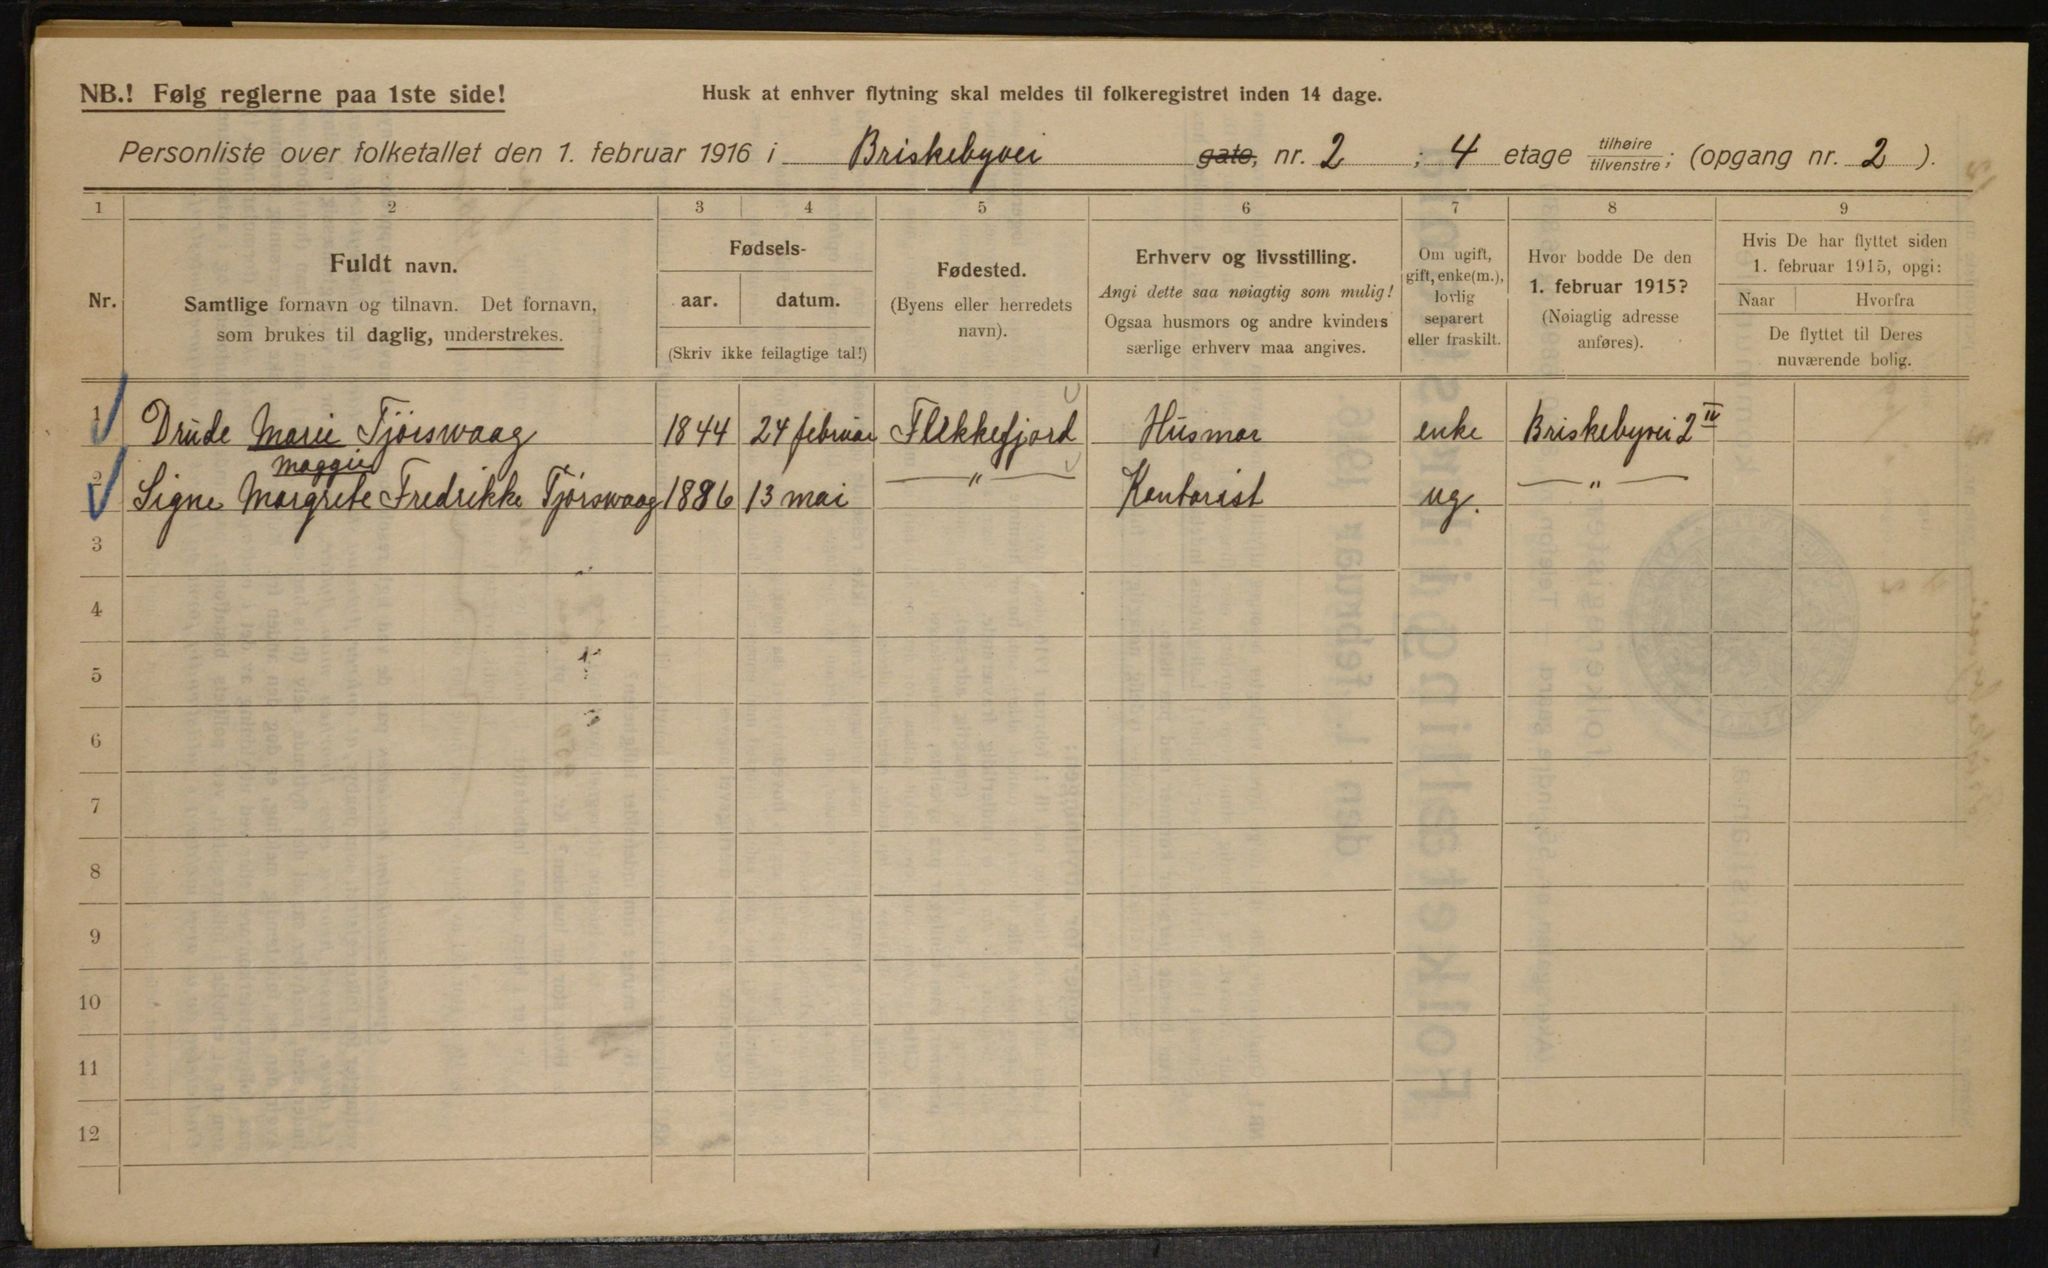 NB.! Følg reglerne paa 1ste side!
Husk at enhver flytning skal meldes til folkeregistret inden 14 dage.
Personliste over folketallet den 1. februar 1916 i Briskebyvei gate, nr. 2 ; 4 etage tilhøire tilvenstre ; (opgang nr. 2 ).
1 2 3 4 5 6 7 8 9
Nr.
Fuldt navn.
Samtlige fornavn og tilnavn. Det fornavn,
som brukes til daglig, understrekes.
Fødsels-
aar. datum.
(Skriv ikke feilagtige tal!)
Fødested.
(Byens eller herredets
navn).
Erhverv og livsstilling.
Angi dette saa nøiagtig som mulig!
Ogsaa husmors og andre kvinders
særlige erhverv maa angives.
Om ugift,
gift, enke(m.),
lovlig
separert
eller fraskilt.
Hvor bodde De den
1. februar 1915?
(Nøiagtig adresse
anføres).
Hvis De har flyttet siden
1. februar 1915, opgi:
Naar Hvorfra
De flyttet til Deres
nuværende bolig.
1 Drude Marie Tjörswaag 1844 24 februar Flekkefjord Husmor enke Briskebyvei 2 IV
Maggie
2 Signe Margrete Fredrikke Tjörswaag 1886 13 mai — " — Kontorist ug. — " —
3
4
5
6
7
8
9
10
11
12